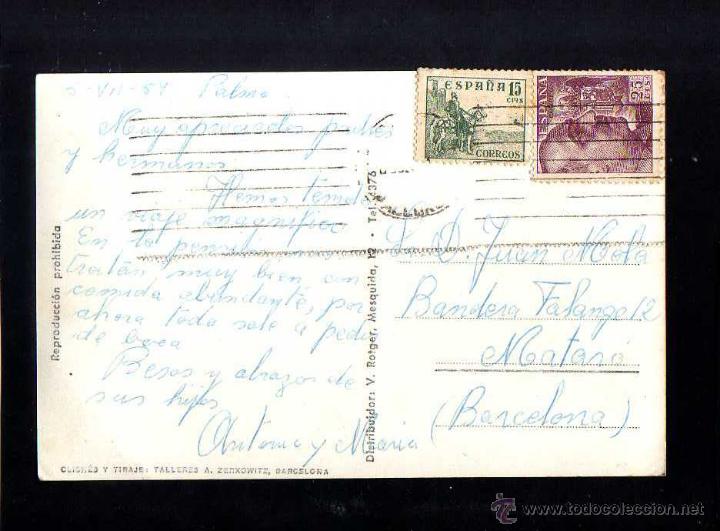 5-VII-54 Palma
Muy apreciados padres
y hermanos
Hemos tenido
un viaje magnífico
En la pensión nos
tratan muy bien, con
comida abundante, por
ahora todo sale a pedir
de boca
Besos y abrazos de
sus hijos
Antonio y Maria
Reproducción prohibida
CLICHÉS Y TIRAJE: TALLERES A. ZERKOWITZ, BARCELONA
Distribuidor: V. Rotger, Mesquida, 12 - Tel. 6376
ESPAÑA 15
CTMS
CORREOS
ESPAÑA
25
D. Juan Mola
Bandera Falange 12
Mataró
(Barcelona)
todocoleccion.net